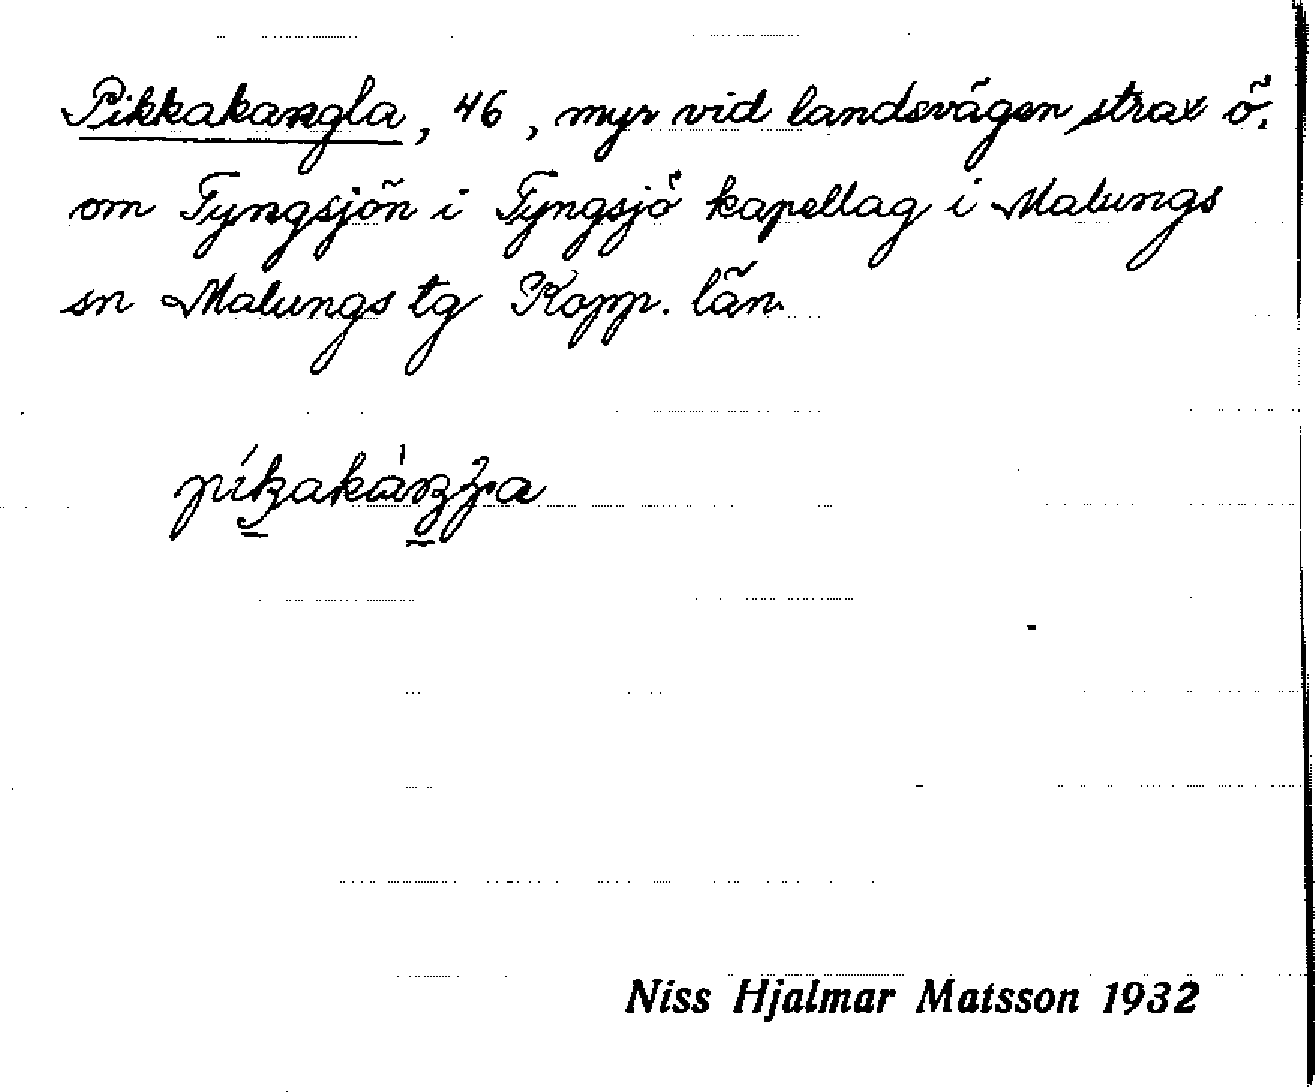 Pikkakangla, 46, myr vid landsvägen strax ö.
om Tyngsjön i Tyngsjö kapellag i Malungs
sn Malungs tg Kopp. län.
Niss Hjalmar Matsson 1932